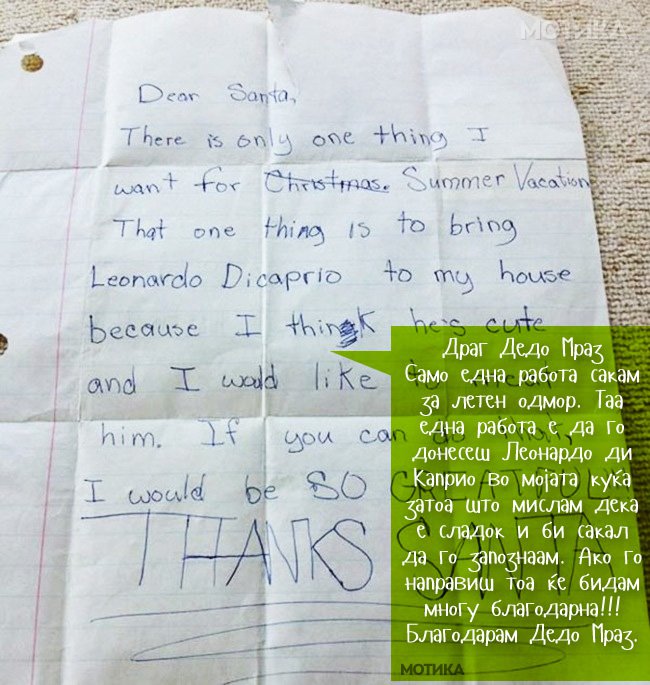 МОТИКА
Dear Santa,
There is only one thing I
want for Christmas. Summer Vacation
That one thing is to bring
Leonardo Dicaprio to my house
because I think he's cute
and I would like
him. If you can
I would be SO
THANKS SANTA
Драг Дедо Мраз
Само една работа сакам
за летен одмор. Таа
една работа е да го
донесеш Леонардо ди
Каприо во мојата куќа
затоа што мислам дека
е сладок и би сакал
да го запознаам. Ако го
направиш тоа ќе бидам
многу благодарна!!!
Благодарам Дедо Мраз.
МОТИКА